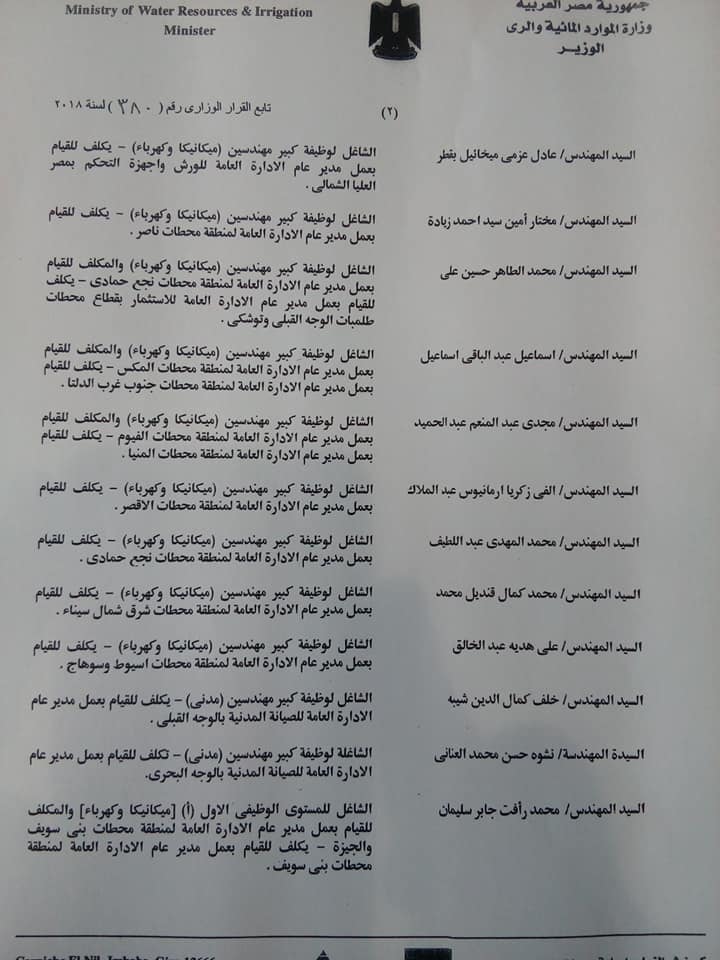 Ministry of Water Resources & Irrigation
Minister
جمهورية مصر العربية
وزارة الموارد المائية والرى
الوزير
تابع القرار الوزارى رقم ( ٣٨٠ ) لسنة ٢٠١٨
(٢)
السيد المهندس/ عادل عزمى ميخائيل بقطر
الشاغل لوظيفة كبير مهندسين (ميكانيكا وكهرباء) – يكلف للقيام
بعمل مدير عام الادارة العامة للورش واجهزة التحكم بمصر
العليا الشمالى .
السيد المهندس/ مختار أمين سيد احمد زيادة
الشاغل لوظيفة كبير مهندسين (ميكانيكا وكهرباء) – يكلف للقيام
بعمل مدير عام الادارة العامة لمنطقة محطات ناصر .
السيد المهندس/ محمد الطاهر حسين على
الشاغل لوظيفة كبير مهندسين (ميكانيكا وكهرباء) والمكلف للقيام
بعمل مدير عام الادارة العامة لمنطقة محطات نجع حمادى – يكلف
للقيام بعمل مدير عام الادارة العامة للاستثمار بقطاع محطات
طلمبات الوجه القبلى وتوشكى .
السيد المهندس/ اسماعيل عبد الباقى اسماعيل
الشاغل لوظيفة كبير مهندسين (ميكانيكا وكهرباء) والمكلف للقيام
بعمل مدير عام الادارة العامة لمنطقة محطات المكس – يكلف للقيام
بعمل مدير عام الادارة العامة لمنطقة محطات جنوب غرب الدلتا .
السيد المهندس/ مجدى عبد المنعم عبد الحميد
الشاغل لوظيفة كبير مهندسين (ميكانيكا وكهرباء) والمكلف للقيام
بعمل مدير عام الادارة العامة لمنطقة محطات الفيوم – يكلف للقيام
بعمل مدير عام الادارة العامة لمنطقة محطات المنيا .
السيد المهندس/ الفى زكريا ارمانيوس عبد الملاك
الشاغل لوظيفة كبير مهندسين (ميكانيكا وكهرباء) – يكلف للقيام
بعمل مدير عام الادارة العامة لمنطقة محطات الاقصر .
السيد المهندس/ محمد المهدى عبد اللطيف
الشاغل لوظيفة كبير مهندسين (ميكانيكا وكهرباء) – يكلف للقيام
بعمل مدير عام الادارة العامة لمنطقة محطات نجع حمادى .
السيد المهندس/ محمد كمال قنديل محمد
الشاغل لوظيفة كبير مهندسين (ميكانيكا وكهرباء) – يكلف للقيام
بعمل مدير عام الادارة العامة لمنطقة محطات شرق شمال سيناء .
السيد المهندس/ على هديه عبد الخالق
الشاغل لوظيفة كبير مهندسين (ميكانيكا وكهرباء) – يكلف للقيام
بعمل مدير عام الادارة العامة لمنطقة محطات اسيوط وسوهاج .
السيد المهندس/ خلف كمال الدين شيبه
الشاغل لوظيفة كبير مهندسين (مدنى) – يكلف للقيام بعمل مدير عام
الادارة العامة للصيانة المدنية بالوجه القبلى .
السيدة المهندسة/ نشوه حسن محمد العنانى
الشاغلة لوظيفة كبير مهندسين (مدنى) – تكلف للقيام بعمل مدير عام
الادارة العامة للصيانة المدنية بالوجه البحرى.
السيد المهندس/ محمد رأفت جابر سليمان
الشاغل للمستوى الوظيفى الاول (أ) [ميكانيكا وكهرباء] والمكلف
للقيام بعمل مدير عام الادارة العامة لمنطقة محطات بنى سويف
والجيزة – يكلف للقيام بعمل مدير عام الادارة العامة لمنطقة
محطات بنى سويف .